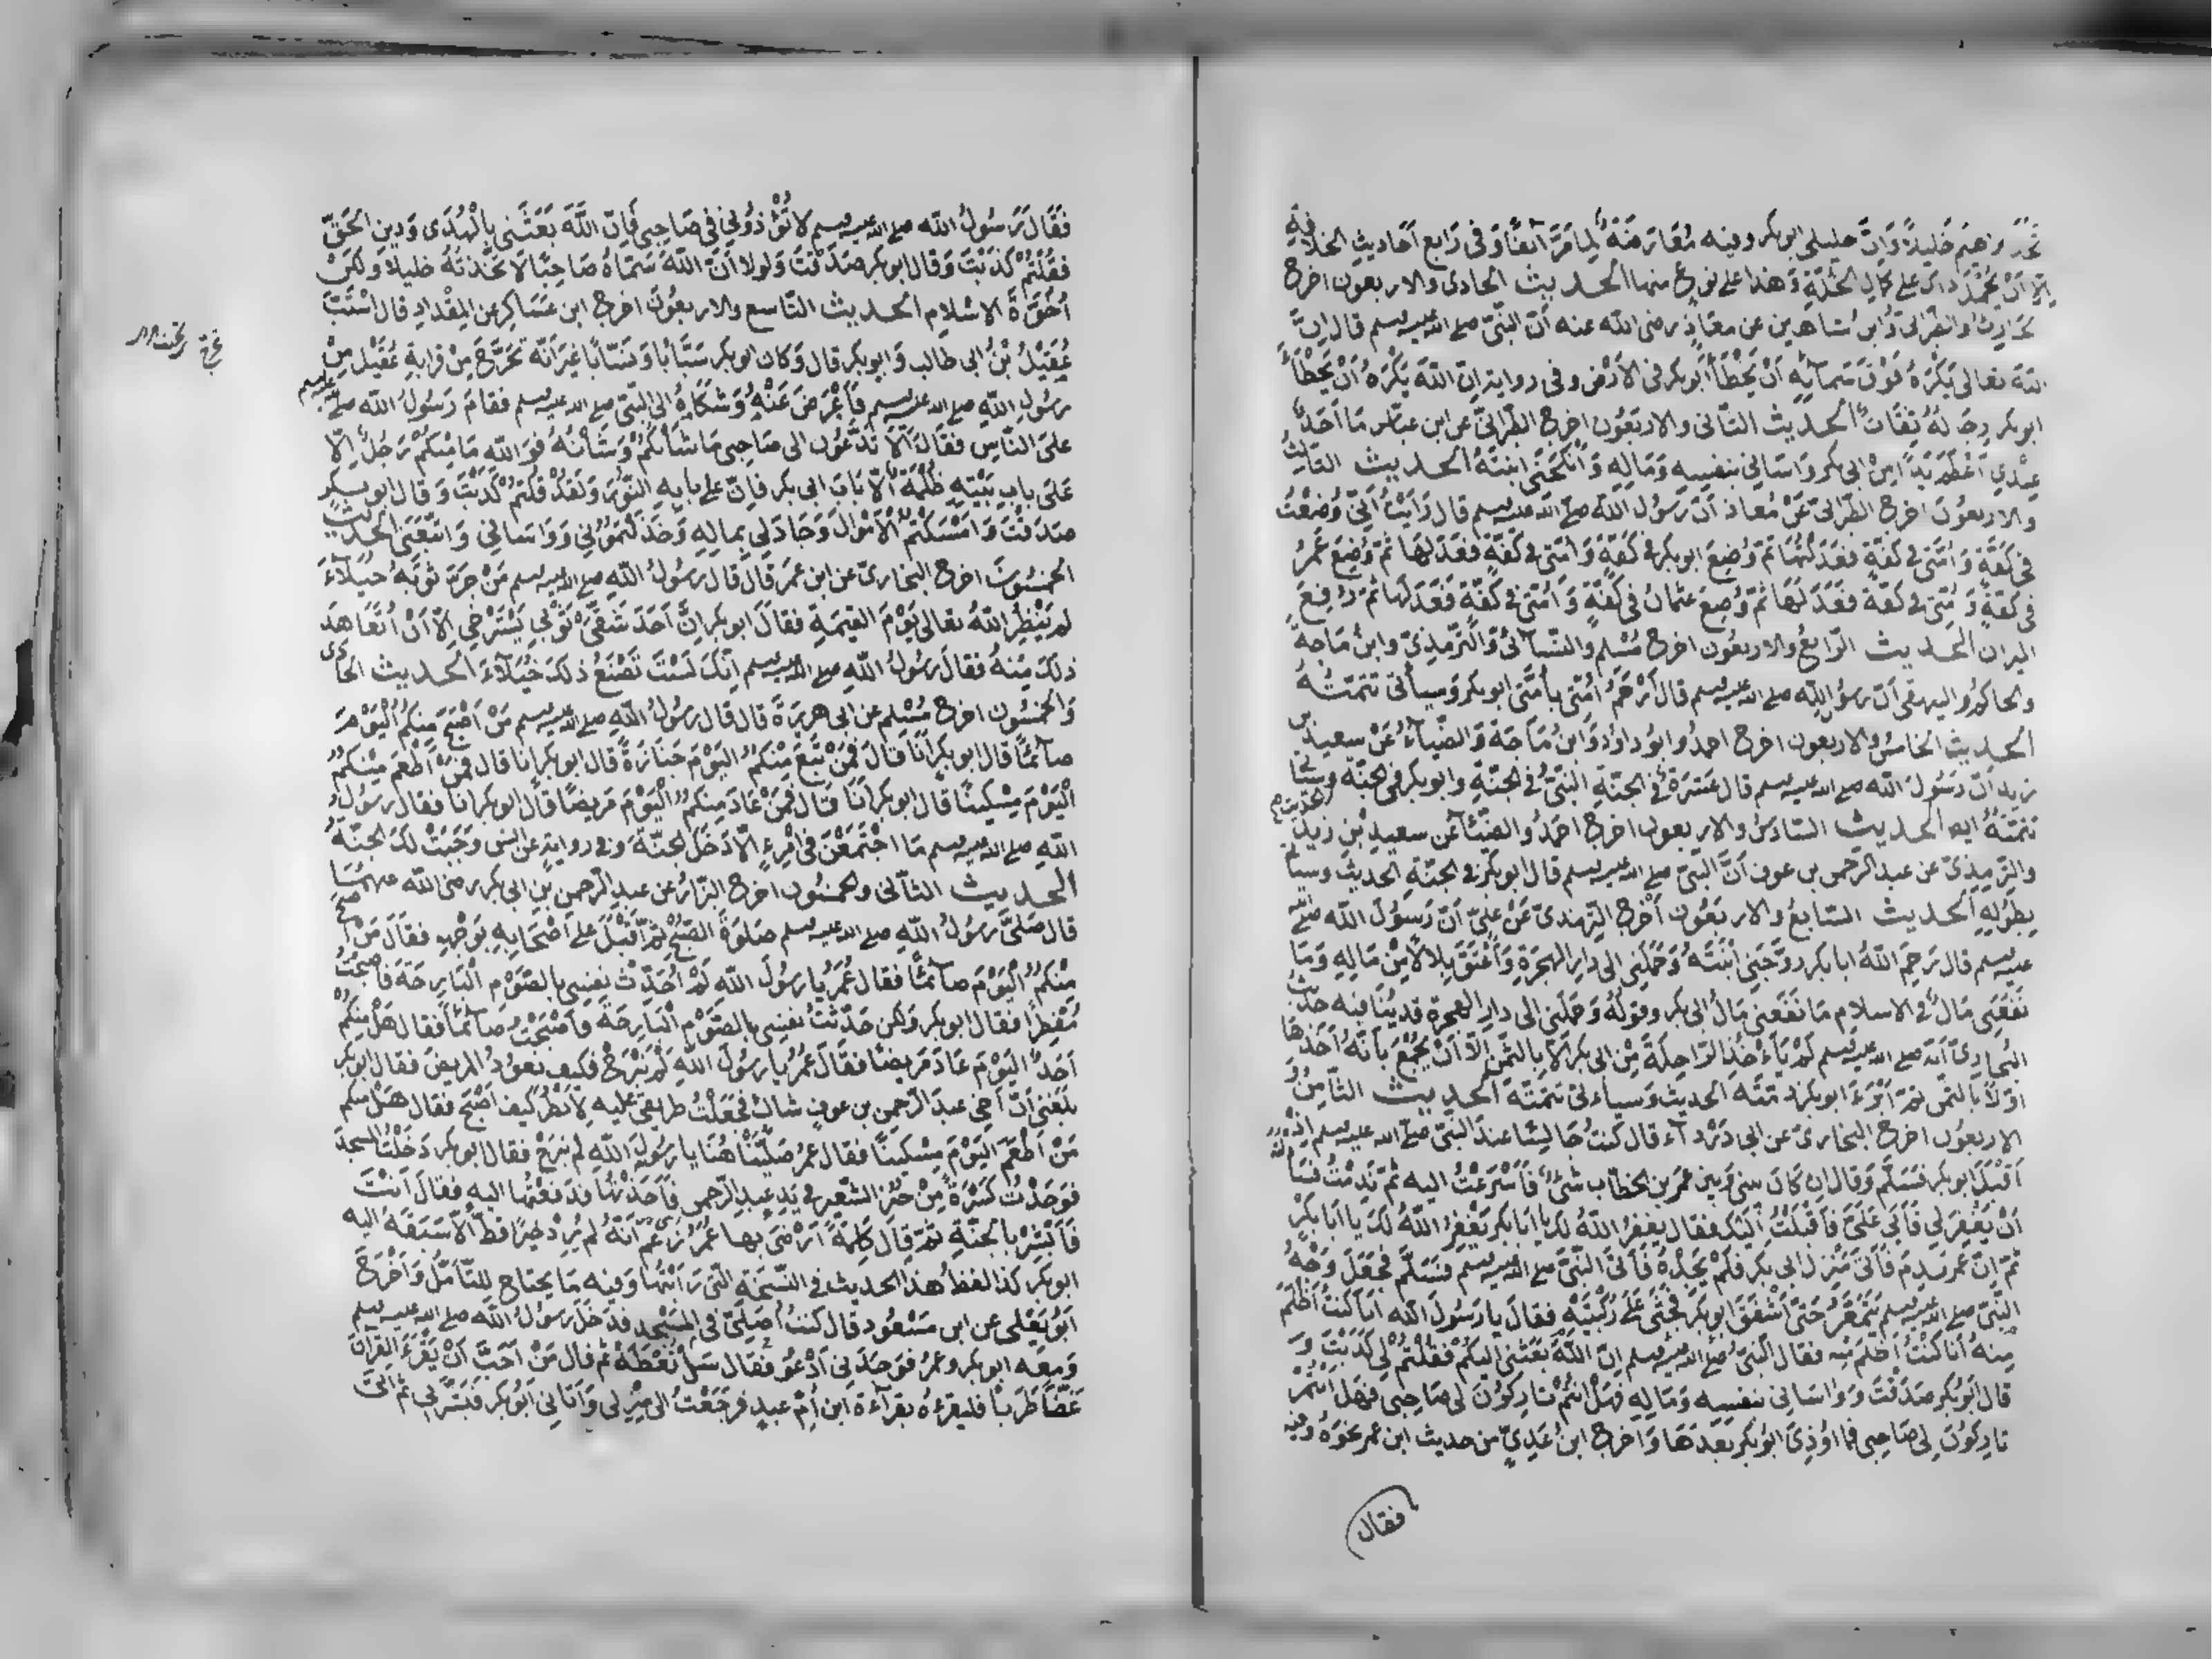 واحد خليلا وان خليلي ابو بكر وفيه معارضة لما مر آنفا وفى رابع احاديث الخلافة
على كمال الخلة وهذا على نوع منها الحديث الحادى والاربعون اخرج
الحارث والطبرانى وابن شاهين عن معاذ رضى الله عنه ان النبى صلى الله عليه وسلم قال ان
الله تعالى يكره فوق سمآئه ان يخطأ ابو بكر فى الارض وفى رواية ان الله يكره ان يخطأ
ابو بكر رجاله ثقات الحديث الثانى والاربعون اخرج الطبرانى عن ابن عباس ما احد
عندى اعظم يدا من ابى بكر واسانى بنفسه وماله وانكحنى ابنته الحديث الثالث
والاربعون اخرج الطبرانى عن معاذ ان رسول الله صلى الله عليه وسلم قال رايت انى وضعت
فى كفة وامتى فى كفة فعدلتها ثم وضع ابو بكر فى كفة وامتى فى كفة فعدلها ثم وضع عمر
فى كفة وامتى فى كفة فعدلها ثم وضع عثمان فى كفة وامتى فى كفة فعدلها ثم رفع
الميزان الحديث الرابع والاربعون اخرج مسلم والنسآئى والترمذى وابن ماجه
والحاكم والبيهقى ان رسول الله صلى الله عليه وسلم قال ارحم امتى بأمتى ابو بكر وسيأتى تتمته
الحديث الخامس والاربعون اخرج احمد وابو داؤد وابن ماجة والضيآء عن سعيد بن
زيد ان رسول الله صلى الله عليه وسلم قال عشرة فى الجنة النبى فى الجنة وابو بكر فى الجنة وسيأتى
تتمته الحديث السادس والاربعون اخرج احمد والضيآء عن سعيد بن زيد
والترمذى عن عبد الرحمن بن عوف ان النبى صلى الله عليه وسلم قال ابو بكر فى الجنة الحديث وسيأتى
بطوله الحديث السابع والاربعون اخرج الترمذى عن على ان رسول الله صلى الله
عليه وسلم قال رحم الله ابا بكر زوجنى ابنته وحملنى الى دار الهجرة واعتق بلالا من ماله وما
نفعنى مال فى الاسلام ما نفعنى مال ابى بكر وقوله وحملنى الى دار الهجرة قد ينافيه حديث
البخارى انه صلى الله عليه وسلم لم يأخذ الراحلة من ابى بكر الا بالثمن الا ان يجمع بأنه اخذها
اولا بالثمن ثم ابرء ابو بكر ذمته الحديث وسيأتى تتمته الحديث الثامن و
الاربعون اخرج البخارى عن ابى دردآء قال كنت جالسا عند النبى صلى الله عليه وسلم اذ
اقبل ابو بكر فسلم وقال ان كان بينى وبين عمر بن الخطاب شئ فاسرعت اليه ثم ندمت فسألته
ان يغفر لى فأبى على فاقبلت اليك فقال يغفر الله لك يا ابا بكر يغفر الله لك يا ابا بكر
ثم ان عمر ندم فأتى منزل ابى بكر فلم يجده فأتى النبى صلى الله عليه وسلم فسلم فجعل وجه
النبى صلى الله عليه وسلم يتمعر حتى اشفق ابو بكر فجثى على ركبتيه فقال يا رسول الله انا كنت اظلم
منه انا كنت اظلم منه فقال النبى صلى الله عليه وسلم ان الله بعثنى اليكم فقلتم لى كذبت و
قال ابو بكر صدقت وواسانى بنفسه وماله فهل انتم تاركون لى صاحبى فهل انتم
تاركون لى صاحبى فما اوذى ابو بكر بعدها واخرج ابن عدى من حديث ابن عمر نحوه وفيه
فقال
فقال رسول الله صلى الله عليه وسلم لا تؤذونى فى صاحبى فان الله بعثنى بالهدى ودين الحق
فقلتم كذبت وقال ابو بكر صدقت ولولا ان الله سماه صاحبا لاتخذته خليلا ولكن
اخوة الاسلام الحديث التاسع والاربعون اخرج ابن عساكر عن المقداد قال استب
عقيل بن ابى طالب وابو بكر قال وكان ابو بكر سبابا ونسابا غير انه تحرج من قرابة عقيل من
رسول الله صلى الله عليه وسلم فأعرض عنه وشكاه الى النبى صلى الله عليه وسلم فقام رسول الله صلى الله عليه وسلم
على الناس فقال الا تدعون الى صاحبى ما شأنكم وشأنه فوالله ما منكم رجل الا
على باب بيته ظلمة الا باب ابى بكر فان على بابه النور ولقد قلتم كذبت وقال ابو بكر
صدقت وامسكتم الاموال وجاد لى بماله وخذلتمونى وواسانى واتبعنى الحديث
الخمسون اخرج البخارى عن ابن عمر قال قال رسول الله صلى الله عليه وسلم من جر ثوبه خيلآء
لم ينظر الله تعالى يوم القيمة فقال ابو بكر ان احد شقى ثوبى يسترخى الا ان اتعاهد
ذلك منه فقال رسول الله صلى الله عليه وسلم انك لست تصنع ذلك خيلآء الحديث الحادى
والخمسون اخرج مسلم عن ابى هريرة قال قال رسول الله صلى الله عليه وسلم من اصبح منكم اليوم
صآئما قال ابو بكر انا قال فمن تبع منكم اليوم جنازة قال ابو بكر انا قال فمن اطعم منكم
اليوم مسكينا قال ابو بكر انا قال فمن عاد منكم اليوم مريضا قال ابو بكر انا فقال رسول
الله صلى الله عليه وسلم ما اجتمعن فى امرء الا دخل الجنة وفى رواية عن انس وجبت لك الجنة
الحديث الثانى والخمسون اخرج البزار عن عبد الرحمن بن ابى بكر رضى الله عنهما
قال صلى رسول الله صلى الله عليه وسلم صلوة الصبح ثم اقبل على اصحابه بوجهه فقال من اصبح
منكم اليوم صآئما فقال عمر يا رسول الله لم احدث نفسى بالصوم البارحة فأصبحت
مفطرا فقال ابو بكر ولكن حدثت نفسى بالصوم البارحة فأصبحت صآئما فقال هل منكم
احد اليوم عاد مريضا فقال عمر يا رسول الله لم نبرح فكيف نعود المريض فقال ابو بكر
بلغنى ان اخى عبد الرحمن بن عوف شاك فجعلت طريقى عليه لانظر كيف اصبح فقال هل منكم
من اطعم اليوم مسكينا فقال عمر صلينا هنا يا رسول الله لم نبرح فقال ابو بكر دخلت المسجد
فوجدت كسرة من خبز الشعير فى يد عبد الرحمن فأخذتها فدفعتها اليه فقال انت
فأبشر بالجنة ثم قال كلمة ارضى بها عمر زعم انه لم يرد خيرا قط الا سبقه اليه
ابو بكر كذا لفظ هذا الحديث فى النسخة التى رأيتها وفيه ما يحتاج للتأمل واخرج
ابو يعلى عن ابن مسعود قال كنت اصلى فى المسجد فدخل رسول الله صلى الله عليه وسلم
ومعه ابو بكر وعمر فوجدنى ادعو فقال سل تعطه ثم قال من احب ان يقرء القرآن
غضا طريا فليقرءه بقرآءة ابن ام عبد فرجعت الى منزلى واتانى ابو بكر فبشرنى ثم اتى